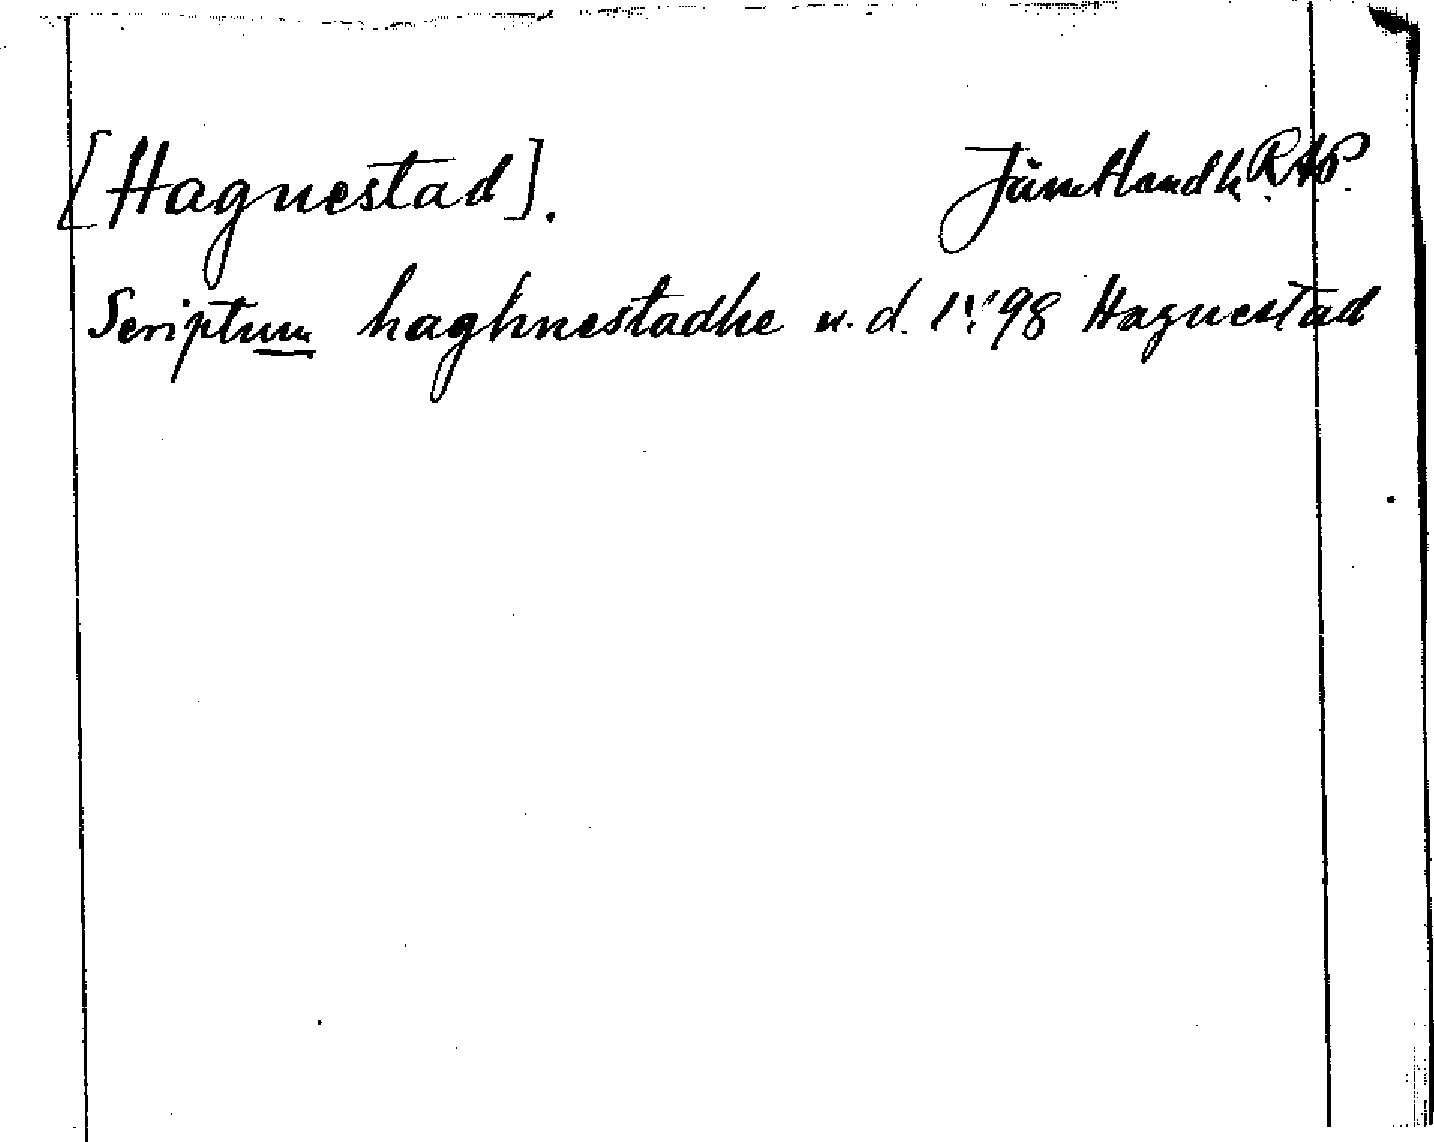 [Hagnestad]. Jämtland h. RAP.
Scriptum haghnestadhe u. d. 1?/?98 Hagnestad